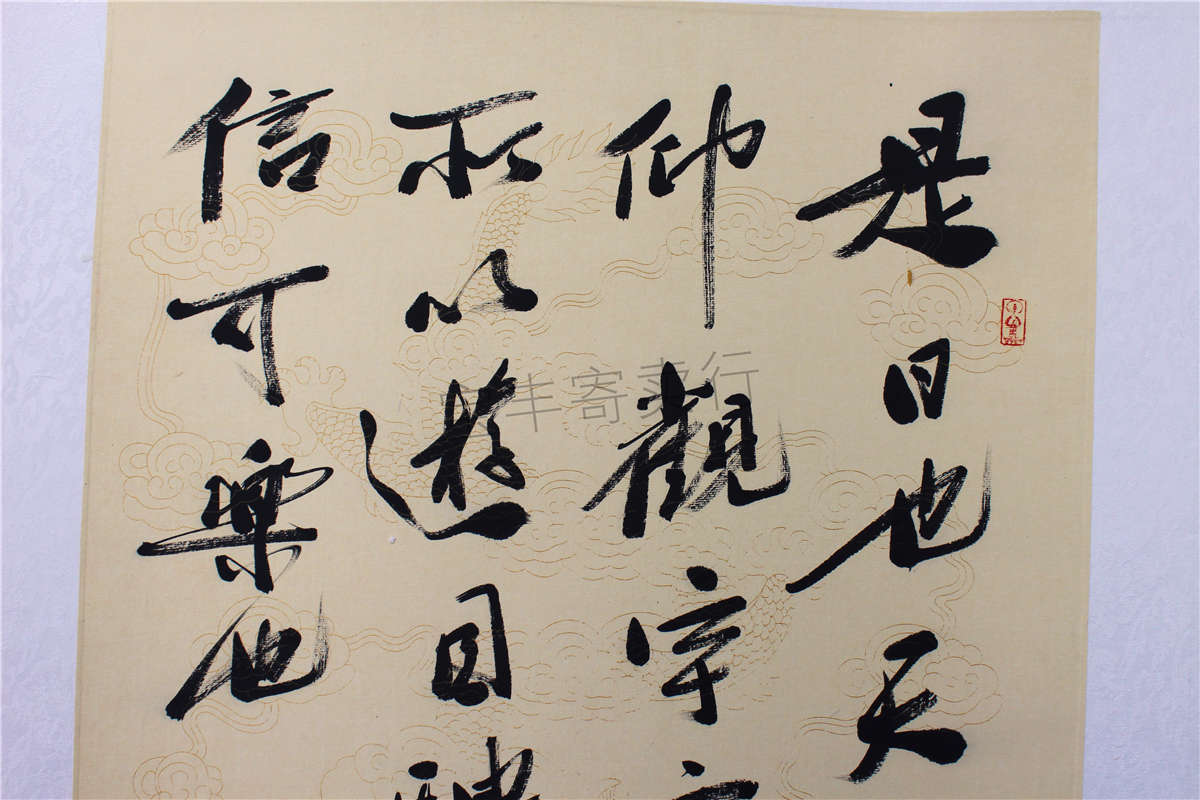 是日也天
仰觀宇
所以遊目騁
信可樂也
丰寄卖行